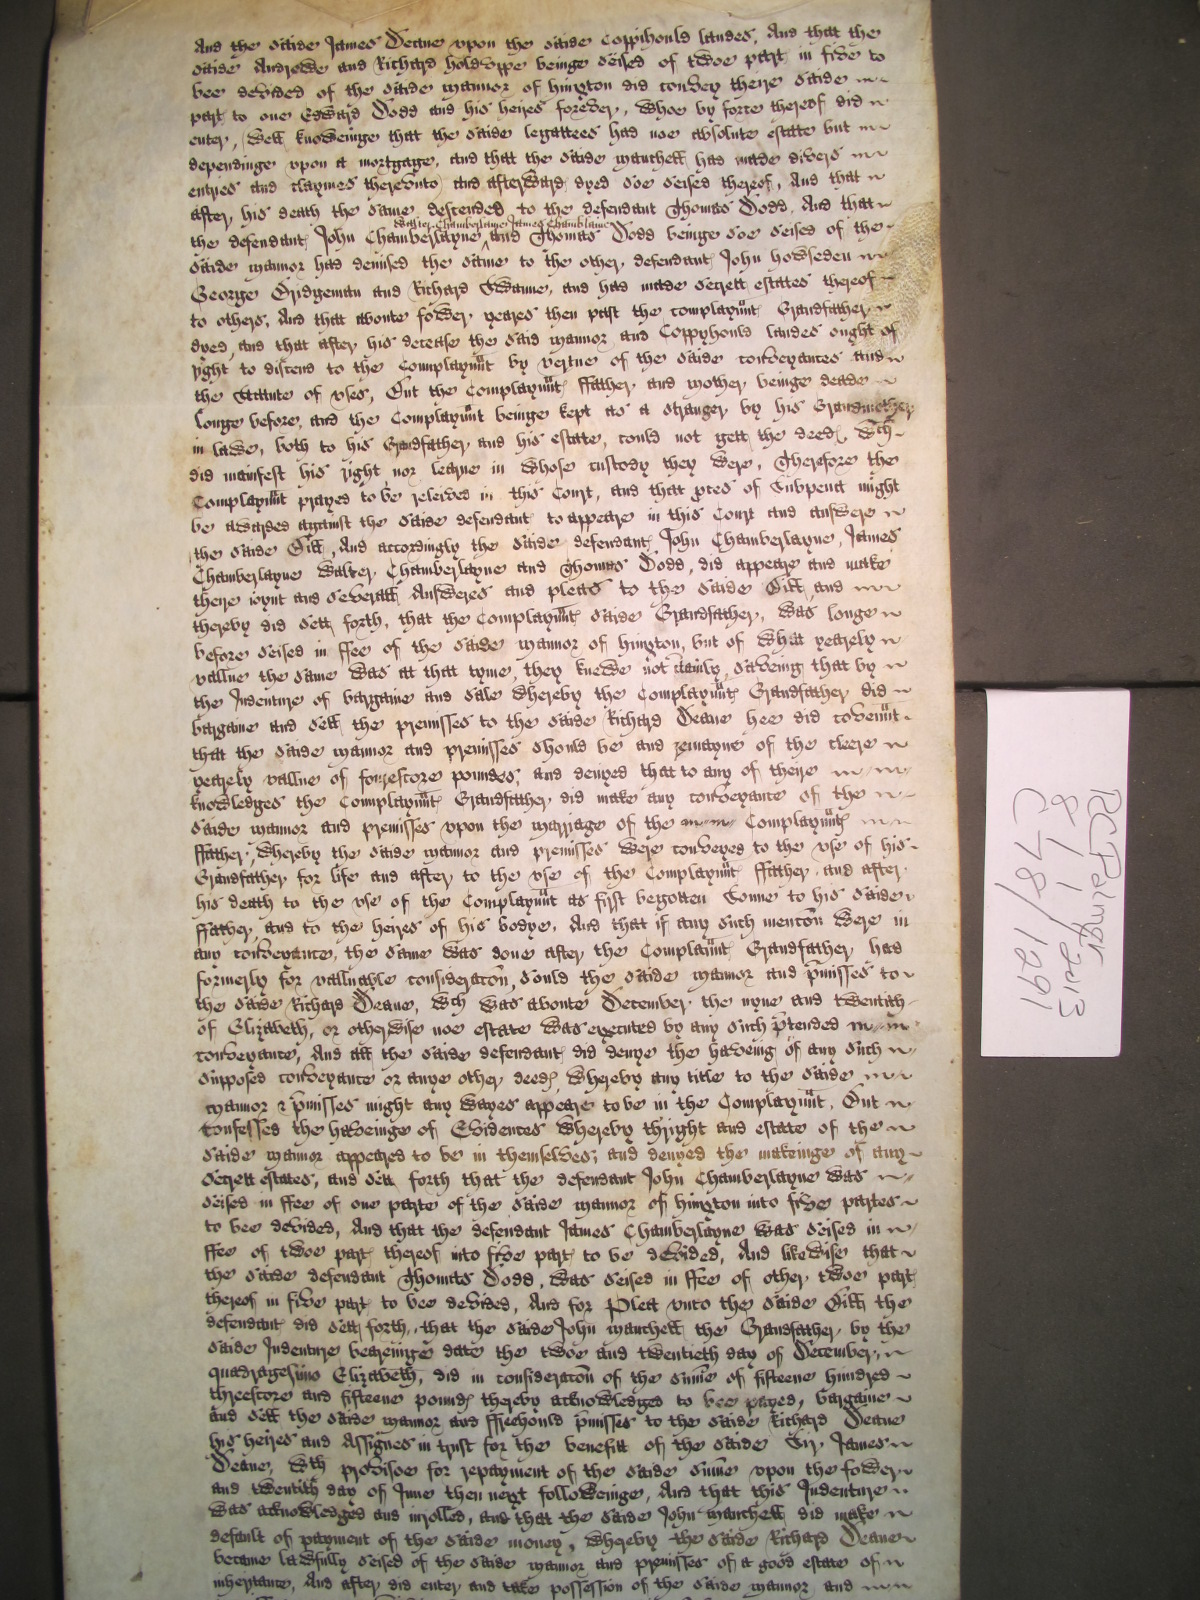 And the saide James Deane vpon the saide Coppihould landes, And that the
saide Androwe and Richard holdvppe beinge seised of twoe part in five to
bee devided of the saide mannor of hinxton did convey theire saide
part to one Edward Dodd and his heires forever, whoe by force thereof did
enter, well knoweinge that the saide legattees had noe absolute estate but
dependinge vpon a mortgage, and that the saide manchell had made divers
entries and claymes therevnto and afterward dyed soe seised thereof, And that
after his death the same descended to the defendant Thomas Dodd. And that
Walter Chamberlaine James Chamblaine
the defendant John Chamberlayne and Thomas Dodd beinge soe seised of the
saide mannor had demised the same to the other defendant John howseden
George Bridgeman and Richard Swanne, and had made secrett estates thereof
to others, And that aboute fower yeares then past the complaynnt Grandfather
dyed, and that after his decease the said mannor and Coppyhould landes ought of
right to discend to the Complaynnt by vertue of the saide conveyances and
the Statute of vses, But the Complaynnt ffather and mother beinge deade
longe before, and the Complaynnt beinge kept as a stranger by his Grandmother
in lawe, both to his Grandfather and his estate, could not gett the deed wch
did mainfest his right nor learne in whose custody they were, Therefore the
Complaynnt prayed to be releived in this Court, and that pces of Subpena might
be awarded against the saide defendant to appeare in this Court and answere
the saide Bill, And accordingly the saide defendant John Chamberlayne, James
Chamberlayne Walter Chamberlayne and Thomas Dodd, did appeare and make
there ioynt and severall Answeres and pleas to the saide Bill and
thereby did sett forth, that the Complaynnt saide Grandfather, was longe
before seised in ffee of the saide mannor of hinxton, but of what yearely
vallue the same was at that tyme, they knewe not saveing that by
the Indenture of bargaine and sale whereby the Complaynnt Grandfather did
bargaine and sell the premisses to the saide Richard Deane hee did covennt
that the saide mannor and premisses should be and remayne of the cleere
yearely vallue of fourescore poundes, and denyed that to any of theire
knowledges the Complaynnt Grandfather did make any conveyance of the
saide mannor and premisses vpon the marriage of the Complaynnt
ffather, whereby the saide mannor and premisses were conveyed to the vse of his
Grandfather for life and after to the vse of the Complaynnt ffather and after
his death to the vse of the Complaynnt as first begotten Sonne to his saide
ffather, and to the heires of his bodye, And that if any such mencon were in
any conveyance, the same was done after the Complaynnt Grandfather had
formerly for valluable consideracon, sould the saide mannor and pmisses to
the saide Richard Deane, wch was aboute December the nyne and twentith
of Elizabeth, or otherwise noe estate was executed by any such ptended
conveyance, And all the saide defendant did denye the haveing of any such
supposed conveyance or anye other deed whereby any title to the saide
mannor & pmisses might any wayes appeare to be in the Complaynnt, But
confessed the haveinge of Evidences whereby thright and estate of the
saide mannor appeared to be in themselves; and denyed the makeinge of any
secrett estates, and sett forth that the defendant John Chamberlayne was
seised in ffee of one parte of the saide mannor of hinxton into five partes
to bee devided, And that the defendant James Chamberlayne was seised in
ffee of twoe part thereof into five part to be devided, And likewise that
the saide defendant Thomas Dodd, was seised in ffee of other twoe part
thereof in five part to bee devided, And for Plea vnto the saide Bill the
defendant did sett forth, that the saide John manchell the Grandfather by the
saide Indenture beareinge date the twoe and twentieth day of December,
quadragesimo Elizabeth, did in consideracon of the sume of fifteene hundred
threescore and fifteene pound thereby acknowledged to bee payed, bargaine
and sell the saide mannor and ffreehould pmisses to the saide Richard Deane
his heires and Assignes in trust for the benefitt of the saide Sir James
Deane, wth provisoe for repayment of the saide sume vpon the fower
and twentith day of June then next followeinge, And that this Indenture
was acknowledged and inrolled, and that the saide John manchell did make
default of payment of the saide money, whereby the saide Richard Deane
became lawfully seised of the saide mannor and premisses of a good estate of
inheritance, And after did enter and take possession of the saide mannor and
RCPalmer
8/1/2013
C78/1291